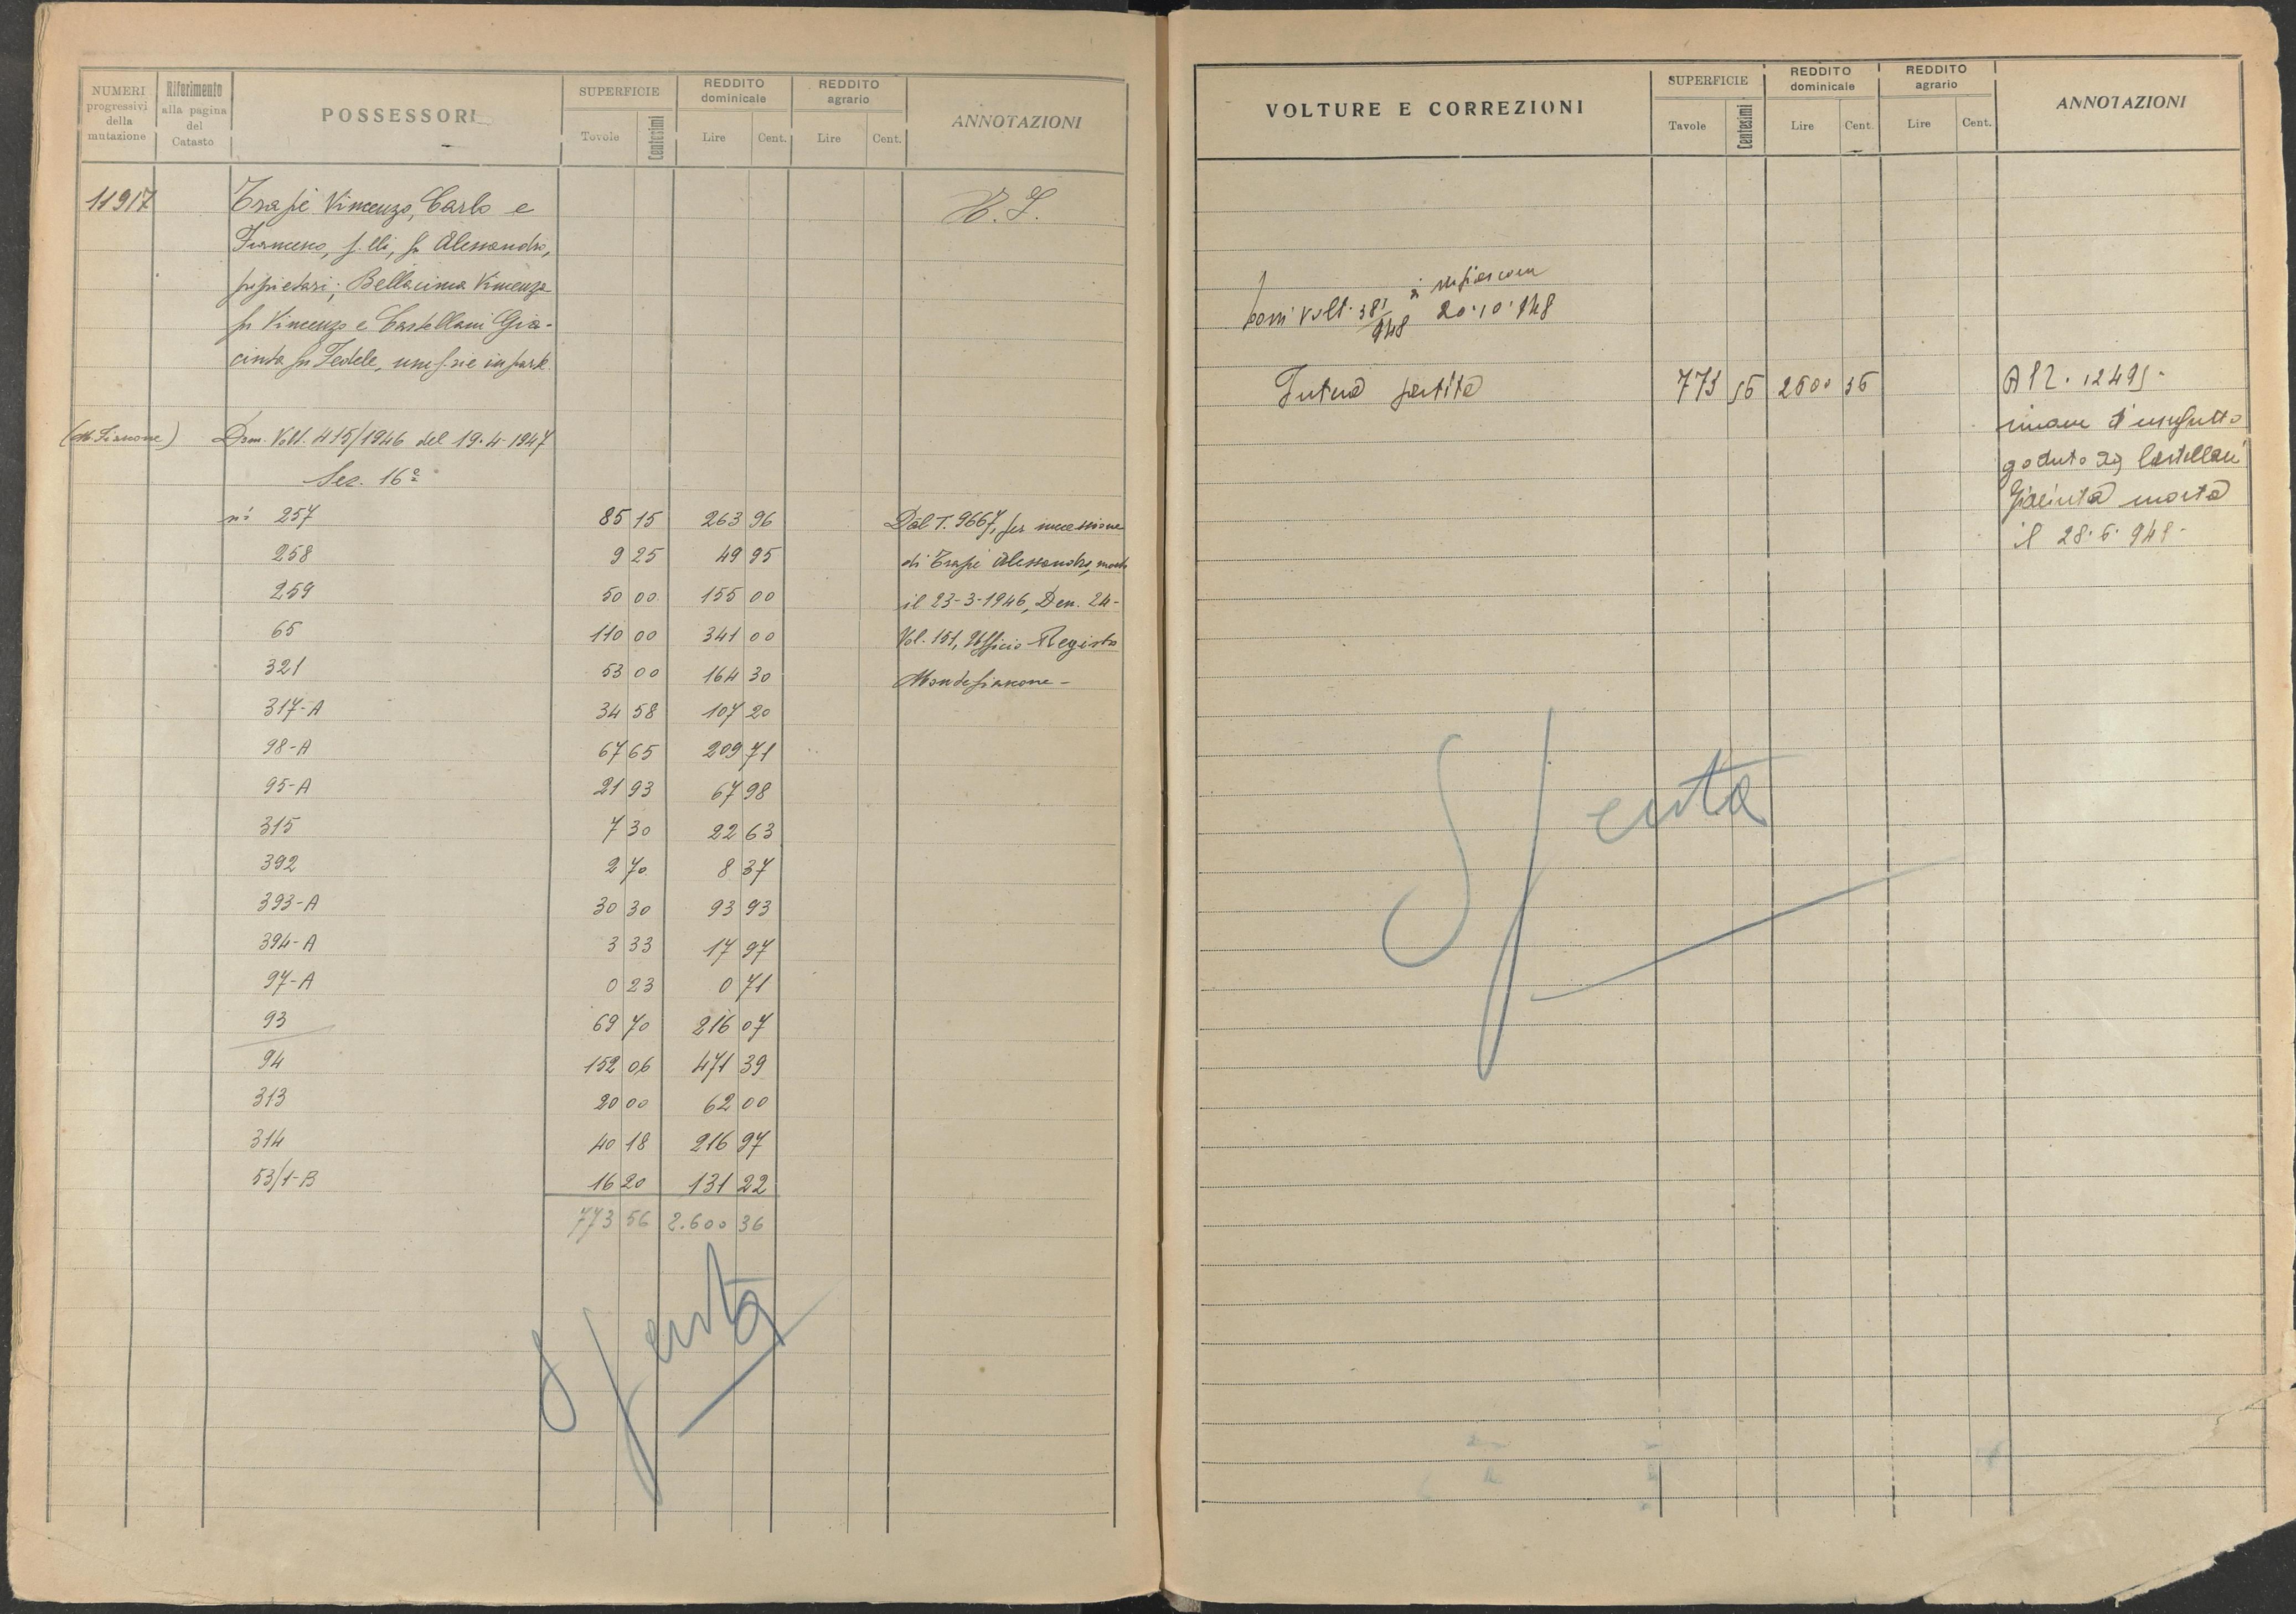 NUMERI progressivi della mutazione
Riferimento alla pagina del Catasto
POSSESSORI
SUPERFICIE
Tavole
Centesimi
REDDITO dominicale
Lire
Cent.
REDDITO agrario
Lire
Cent.
ANNOTAZIONI
11917
Trapè Vincenzo, Carlo e
Francesco, f.lli, fu Alessandro,
proprietari; Bellacima Vincenza
fu Vincenzo e Castellani Gia-
cinta fu Fedele, usuf.rie in parte.
(M. Fiascone) Dom. Volt. 415/1946 del 19-4-1947
Sez. 16ª
ni 257 85 15 263 96 Dal T. 9667, per successione
258 9 25 49 95 di Trapè Alessandro, morto
259 50 00 155 00 il 23-3-1946, Den. 24-
65 110 00 341 00 Vol. 151, Ufficio Registro
321 53 00 164 30 Montefiascone -
317-A 34 58 107 20
98-A 67 65 209 71
95-A 21 93 67 98
315 7 30 22 63
392 2 70 8 37
393-A 30 30 93 93
394-A 3 33 17 97
97-A 0 23 0 71
93 69 70 216 07
94 152 06 471 39
313 20 00 62 00
314 40 18 216 97
53/1-B 16 20 131 22
773 56 2.600 36
Spenta
VOLTURE E CORREZIONI
SUPERFICIE
Tavole
Centesimi
REDDITO dominicale
Lire
Cent.
REDDITO agrario
Lire
Cent.
ANNOTAZIONI
Volt. 381/948 20·10·948
Intera partita 773 56 2600 36 Al P. 12495-
riunione d'usufrutto
goduto da Castellani
Giacinta morta
il 28·6·948-
Spenta